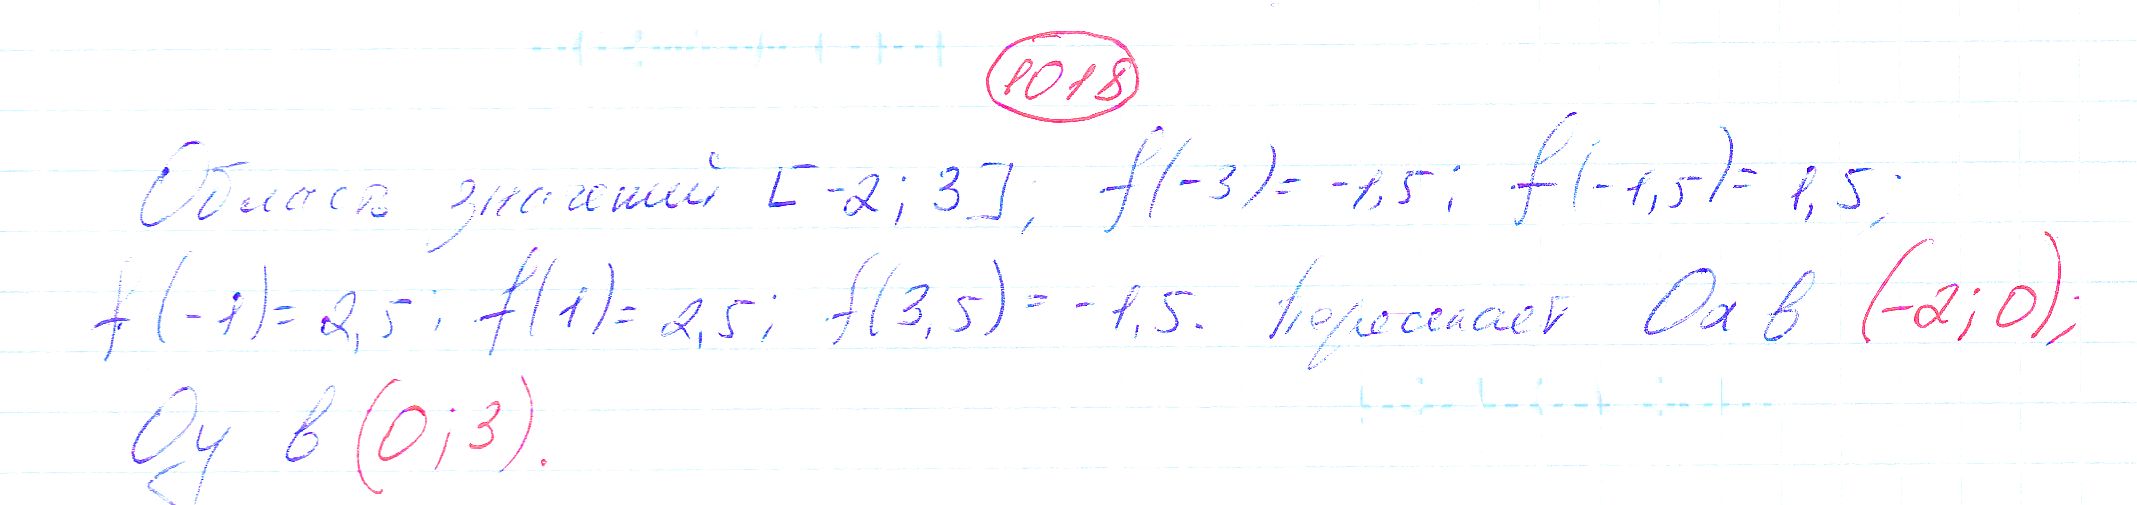 1018
Область значений [-2; 3]; f(-3) = -1,5; f(-1,5) = 1,5;
f(-1) = 2,5; f(1) = 2,5; f(3,5) = -1,5. Пересекает Ox в (-2; 0);
Oy в (0; 3).